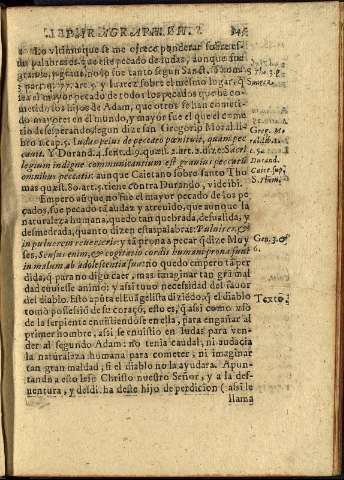 Lo vltimo que se me ofrece ponderar sobre es-
tas palabras es, que este pecado de Iudas, aunque fue
grauissimo, no fue tanto segun Sanct. Thomas
3. part. q. 77. art. 5. y Suarez sobre el mesmo lugar, q̃
sea el mayor pecado de todos los pecados que ha co
metido los hijos de Adam, que otros se han cometi-
do mayores en el mundo, y mayor fue el que el come
tio desesperando, segun dize san Gregorio Moral. li-
bro 1. cap. 5. Iudas peius de peccato pœnituit, quam pec
cauit. Y Durand. 4. sent. d. 9. quæst. 2. art. 2. dize: Sacri
legium indignæ communicantium est grauius peccatis
omnibus peccatis. aunque Caietano sobre santo Tho
mas quæst. 80. art. 5. tiene contra Durando, vide ibi.
Empero aũque no fue el mayor pecado de los pe
cados, fue pecado tã audaz y atreuido, que aunque la
naturaleza humana, quedo tan quebrada, desualida, y
desmedrada, quanto dizen estas palabras: Puluis es, &
in puluerem reuerteris: y tã prona a pecar q̃ dize Moy
ses, Sensus enim, & cogitatio cordis humani prona sunt
in malum ab adolescentia sua: no quedo empero tã per
dida, q̃ para no digo caer, mas imaginar tan grã mal
dad tuuiesse animo: y assi tuuo necessidad del fauor
del diablo. Esto apũta el Euãgelista diziẽdo, q̃ el diablo
tomo possessiõ de su coraçõ, esto es, q̃ assi como vso
de la serpiente enuistiendose en ella, para engañar al
primer hombre, assi se enuistio en Iudas para ven-
der al segundo Adam: no tenia caudal, ni audacia
la naturaleza humana para cometer, ni imaginar
tan gran maldad, si el diablo no la ayudara. Apun-
tando a esto Iesu Christo nuestro Señor, y a la des-
uentura, y desdicha deste hijo de perdicion (assi le
llama
S Tho. 3. p.
Suarez.
Greg. Mo
Durand.
Caiet. sup.
S. Thom.
Gen. 3. &
6.
Texto.